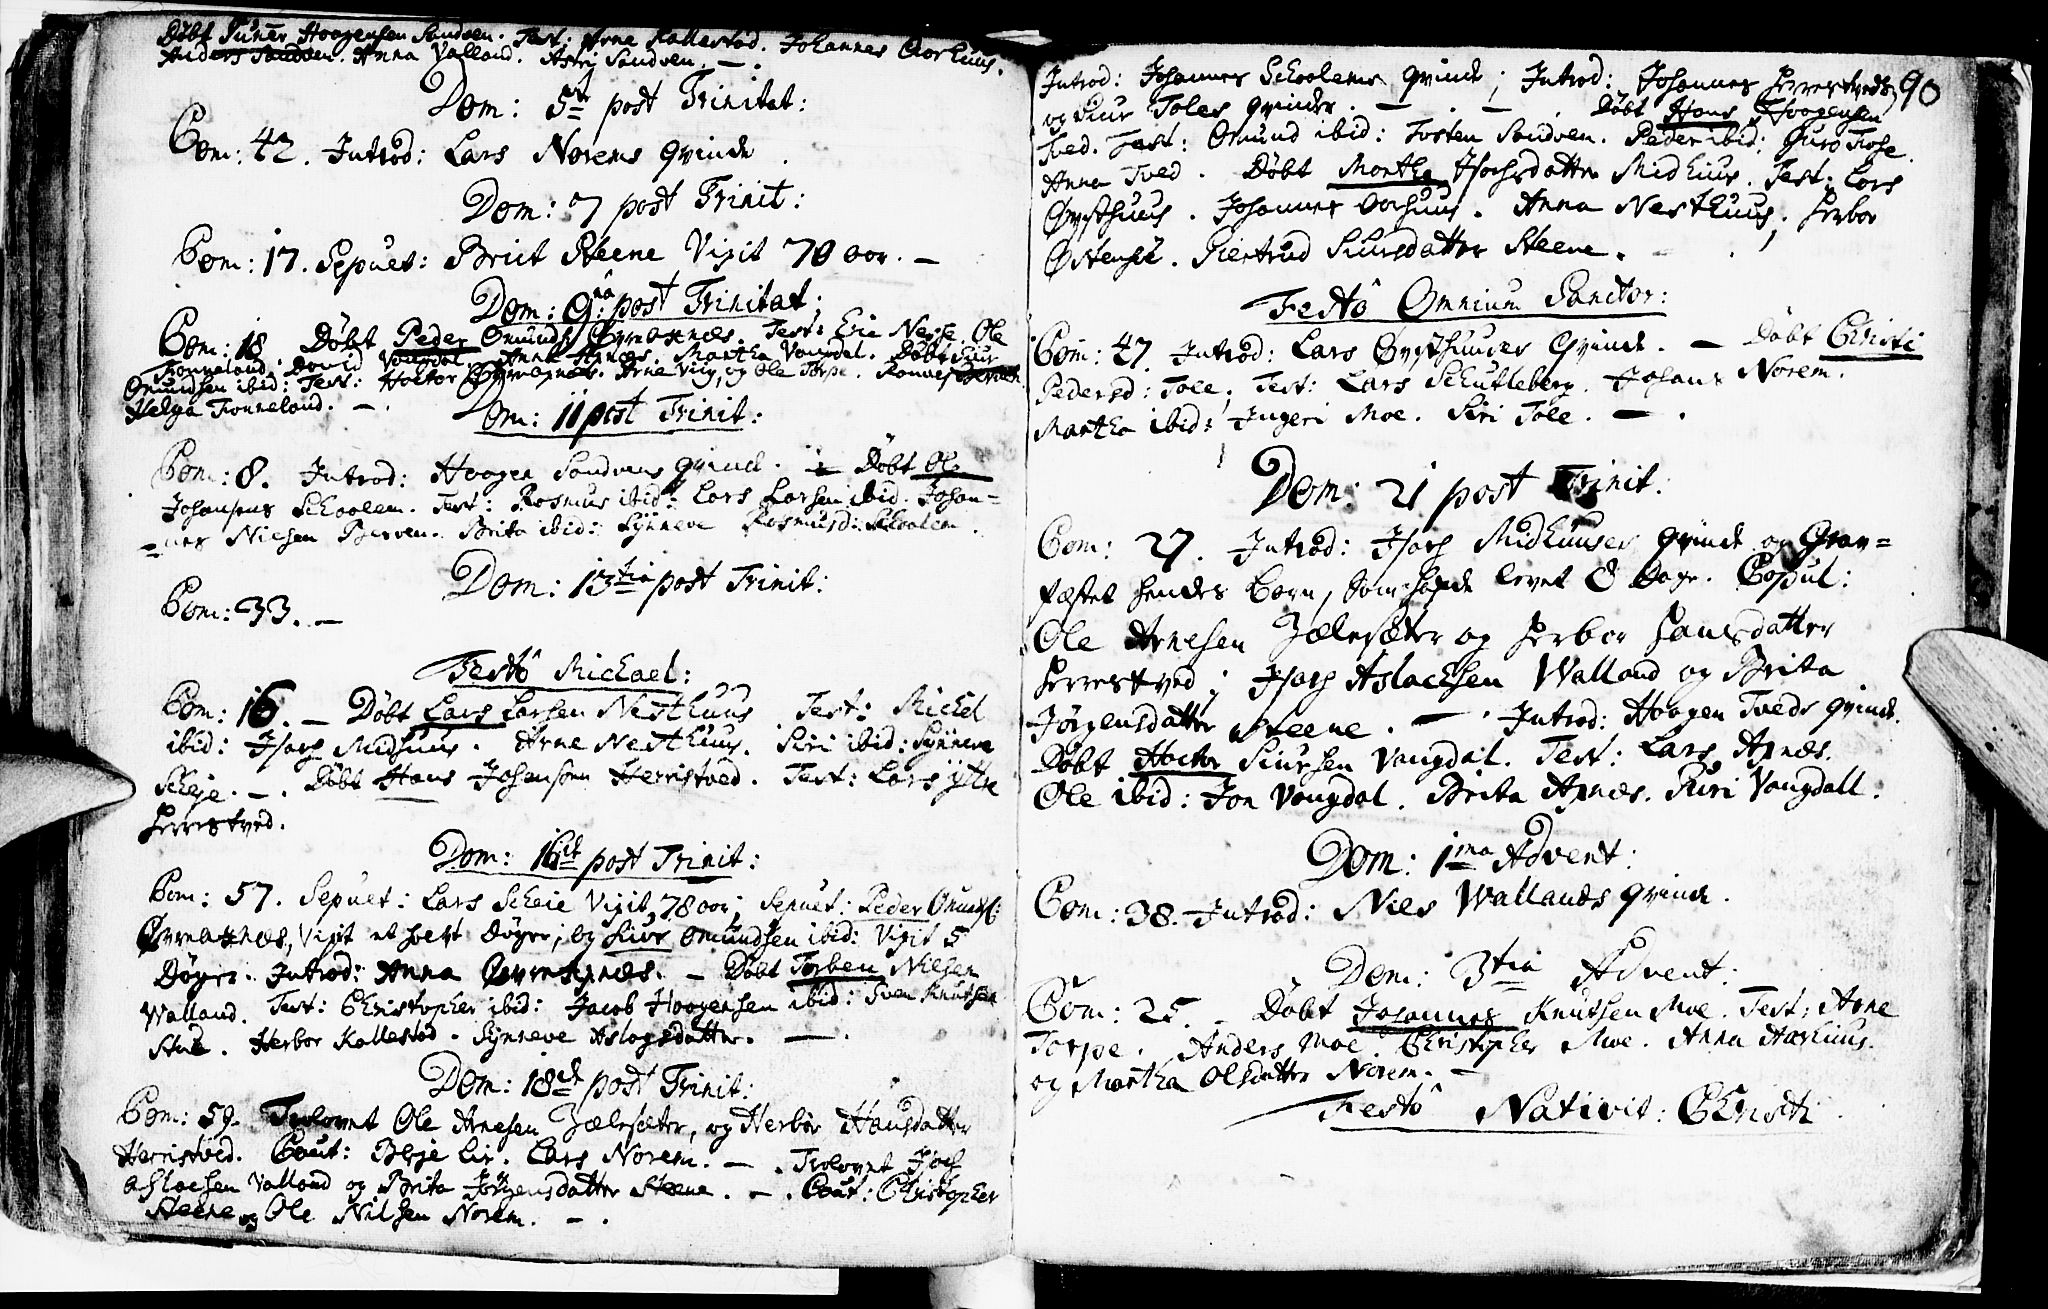 Døbt Tüner Haagensen Sandven. Test: Arne Kallestad. Johannes Aarhuus.
Anders Sandven. Anna Valland. Astri Sandven. —.
Dom: 5te post Trinitat:
Com: 42. Introd: Lars Norems Qvinde.
Dom: 7 post Trinit:
Com: 17. Sepult: Brit Steene Vixit 70 aar. —
Dom: 9na post Trinitat:
Com: 18 Døbt Peder Omunds: Øvreaxnæs. Test: Ole
Tronneland. David Vangdal. Anna Axnæs. Martha Vangdal. Døbt Siur
Omundsen ibid: Test: Hactor Øvreaxnæs. Arne Viig, og Ole Torpe.
Helga Tronneland. —.
Dom: 11 post Trinit:
Com: 8. Introd: Haagen Sandvens Qvinde. — Døbt Ole
Johansens Schaalem. Test: Rasmus ibid: Lars Larsen ibid. Johan=
=nes Nielsen Berven. Brita ibid: Synneve Rasmusd: Schaalem.
Dom: 13tia post Trinit:
Com: 33. —
Festô Michael:
Com: 16. — Døbt Lars Larsen Nesthuus Test: Michel
ibid: Isach Midhuus. Arne Nesthuus. Siri ibid: Synneve
Scheje. —. Døbt Hans Johansøn Herristved. Test: Lars ytre
Herrestved.
Dom: 16de post Trinit:
Com: 57. Sepult: Lars Scheie Vixit 78 aar; Sepult: Peder Omunds:
Øvreaxnæs, Vixit et halvt Døger; og Siur Omundsen ibid: Vixit 5
Døger. Introd: Anna Øvreaxnæs. — Døbt Torben Nilsen
Walland. Test: Christopher ibid: Jacob Haagensen ibid: Sven Knutsen
Stue. Herbor Kallestad. Synneve Aslagsdatter. —.
Dom: 18de post Trinit:
Com: 59. Trolovet Ole Arnesen Jælesæter, og Herbor Hansdatter
Herristved. Caut: Børje Lie. Lars Norem. —. Trolovet Isach
Aslacsen Valland og Brita Jørgensdatter Steene. —. Caut: Christopher
Steene og Ole Nilsen Norem. —.
90
Introd: Johannes Schaalems Qvinde; Introd: Johannes Herrestveds
og Siur Toles Qvinder. — . — . Døbt Hans Haagensen
Tved. Test: Omund ibid: Tosten Sandven. Peder ibid: Guro Tose.
Anna Tved. Døbt Martha Isachsdatter Midhuus. Test: Lars
Øysthuus. Johannes Aarhuus. Anna Nesthuus; Herbor
Østensø. Giertrud Siursdatter Steene.
Festô Omnium Sanctor:
Com: 47. Introd: Lars Øysthuuses Qvinde. — Døbt Christi
Pedersd: Tole; Test: Lars Schutleberg. Johans Norem.
Martha ibid: Ingeri Moe. Siri Tole. —.
Dom: 21 post Trinit:
Com: 27. Introd: Isach Midhuuses Qvinde og Grav=
fæstet hendes Barn, som hafde levet 8 Dage. Copul:
Ole Arnesen Jælesæter og Herbor Hansdatter
Herrestved; Isach Aslachsen Walland og Brita
Jørgensdatter Steene. —. Introd: Haagen Tveds Qvinde.
Døbt Hactor Siursen Vangdal. Test: Lars Axnæs.
Ole ibid: Jon Vangdal. Brita Axnæs. Guri Vangdall.
Dom: 1ma Advent:
Com: 38. Introd: Niels Wallands Qvinde.
Dom: 3tia Advent:
Com: 25. — Døbt Johannes Knutsen Moe. Test: Arne
Torpe. Anders Moe. Christopher Moe. Anna Aarhuus.
og Martha Olsdatter Norem. —
Festô Nativit: Christi.